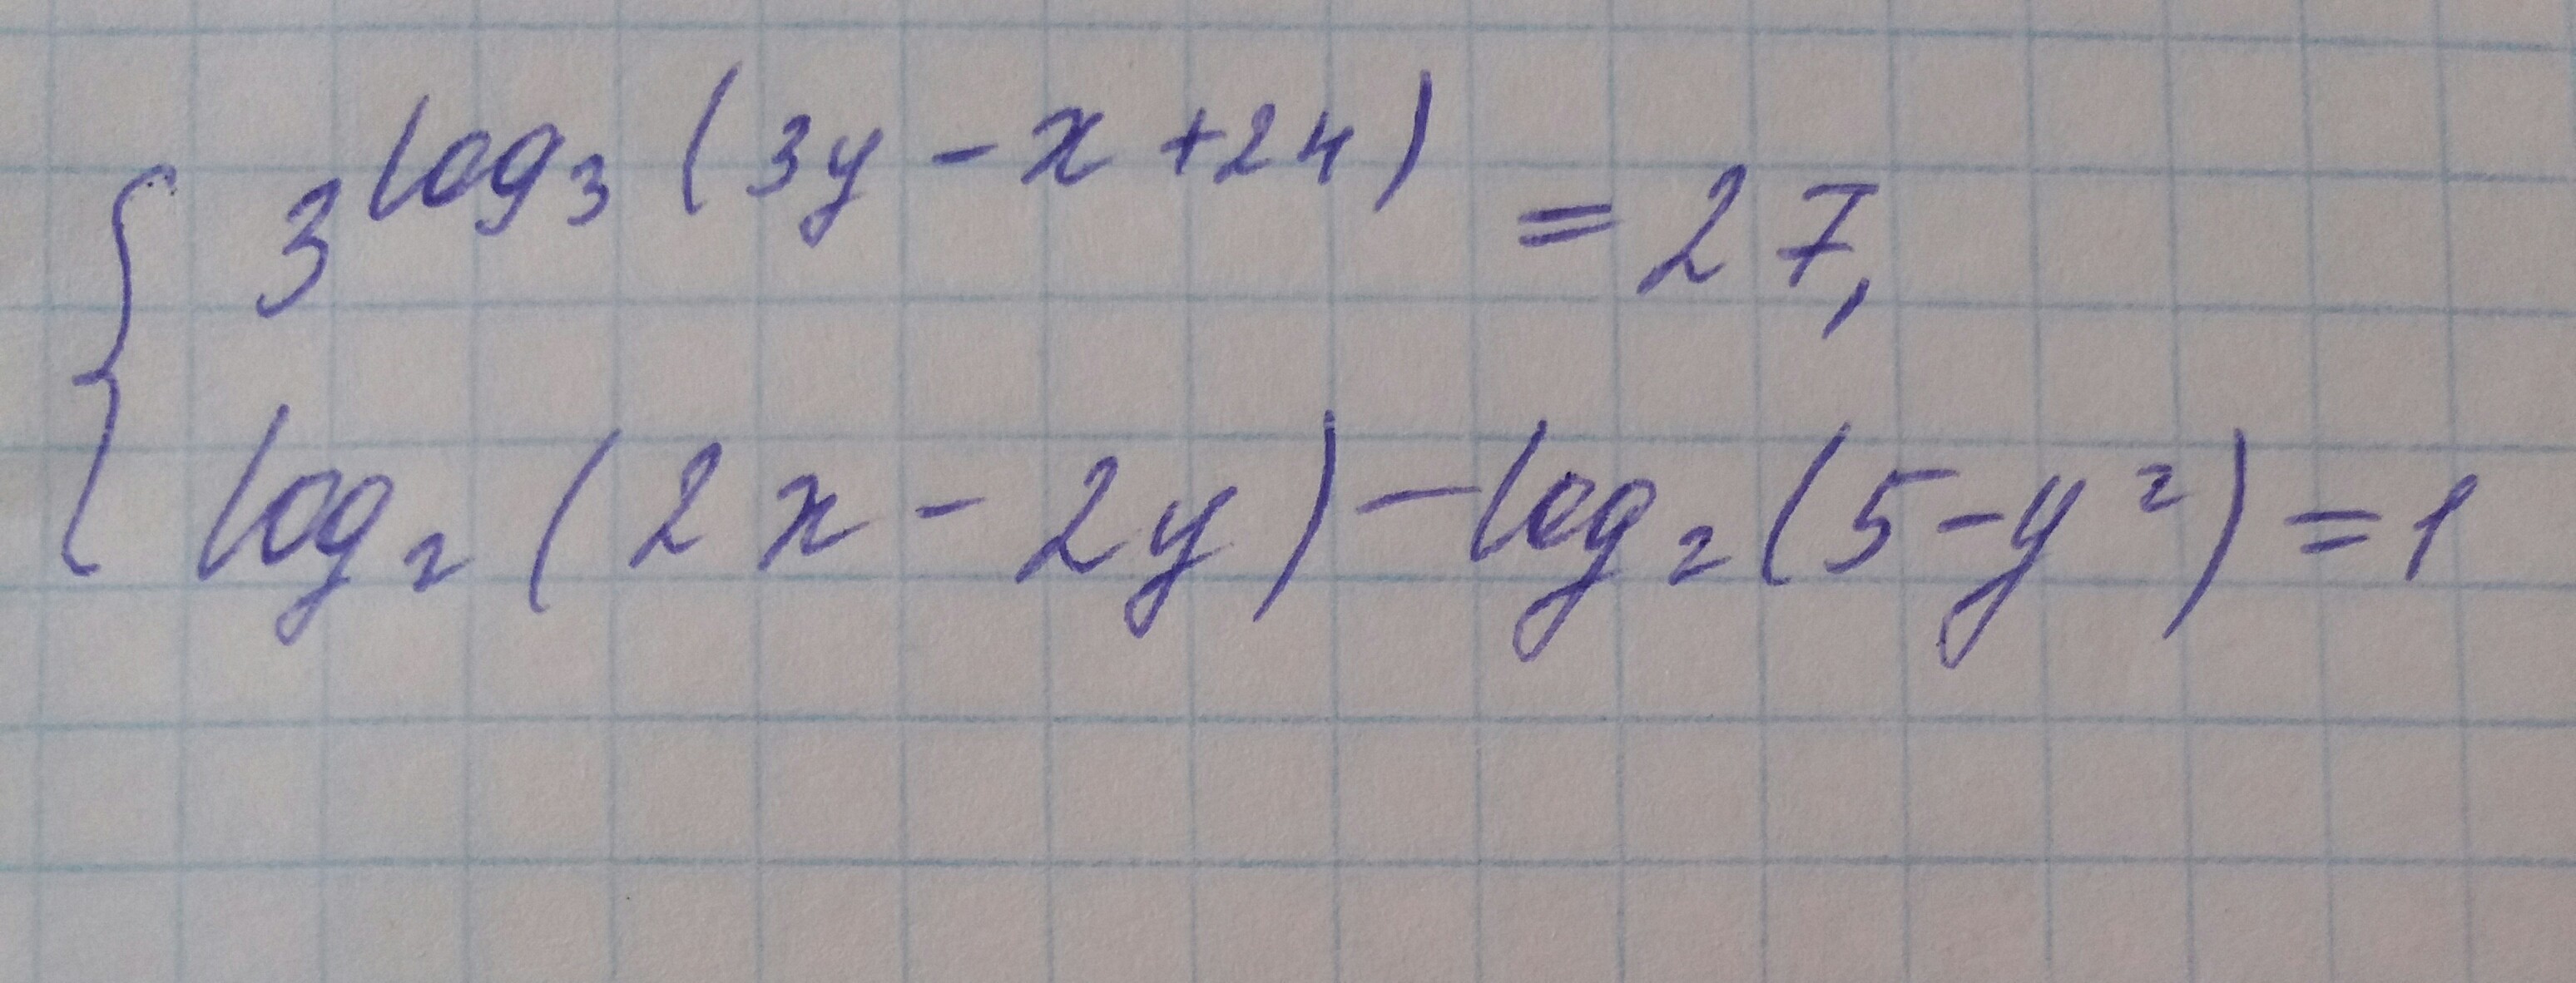 { 3^{log_3 (3y - x + 24)} = 27,
log_2 (2x - 2y) - log_2 (5 - y^2) = 1